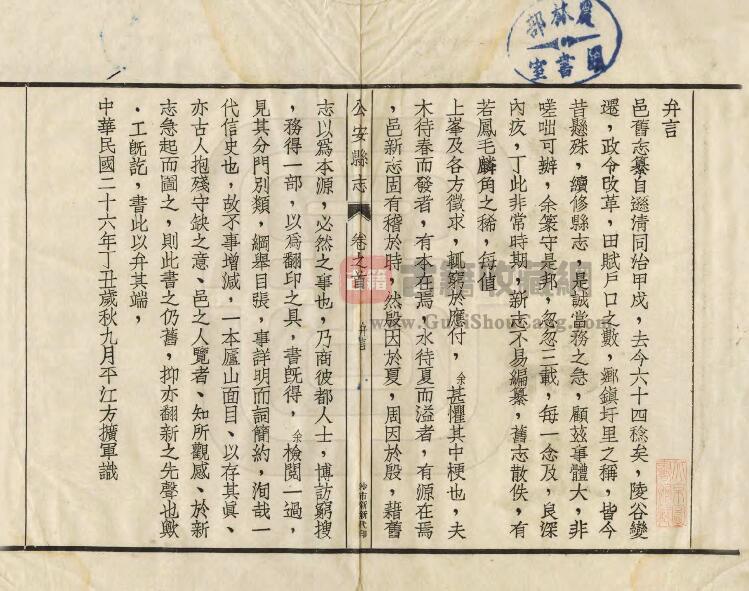 農林部
圖書室
弁言
邑舊志纂自遜清同治甲戌，去今六十四稔矣，陵谷變
遷，政令改革，田賦戶口之數，鄉鎭圩里之稱，皆今
昔懸殊，續修縣志，是誠當務之急，顧茲事體大，非
嗟咄可辦，余篆守是邦，忽忽三載，每一念及，良深
內疚，丁此非常時期，新志不易編纂，舊志散佚，有
若鳳毛麟角之稀，每值
上峯及各方徵求，輒窮於應付，余甚懼其中梗也，夫
木待春而發者，有本在焉，水待夏而溢者，有源在焉
，邑新志固有稽於時，然殷因於夏，周因於殷，藉舊
公安縣志
卷之首
弁言
沙市新新代印
志以爲本源，必然之事也，乃商彼都人士，博訪窮搜
，務得一部，以爲翻印之具，書旣得，余檢閱一過，
見其分門別類，綱舉目張，事詳明而詞簡約，洵哉一
代信史也，故不事增減，一本廬山面目、以存其眞、
亦古人抱殘守缺之意、邑之人覽者、知所觀感、於新
志急起而圖之，則此書之仍舊，抑亦翻新之先聲也歟
．工旣訖，書此以弁其端，
中華民國二十六年丁丑歲秋九月平江方擴軍識
古籍
古籍收藏網
www.GuJiShouCang.com